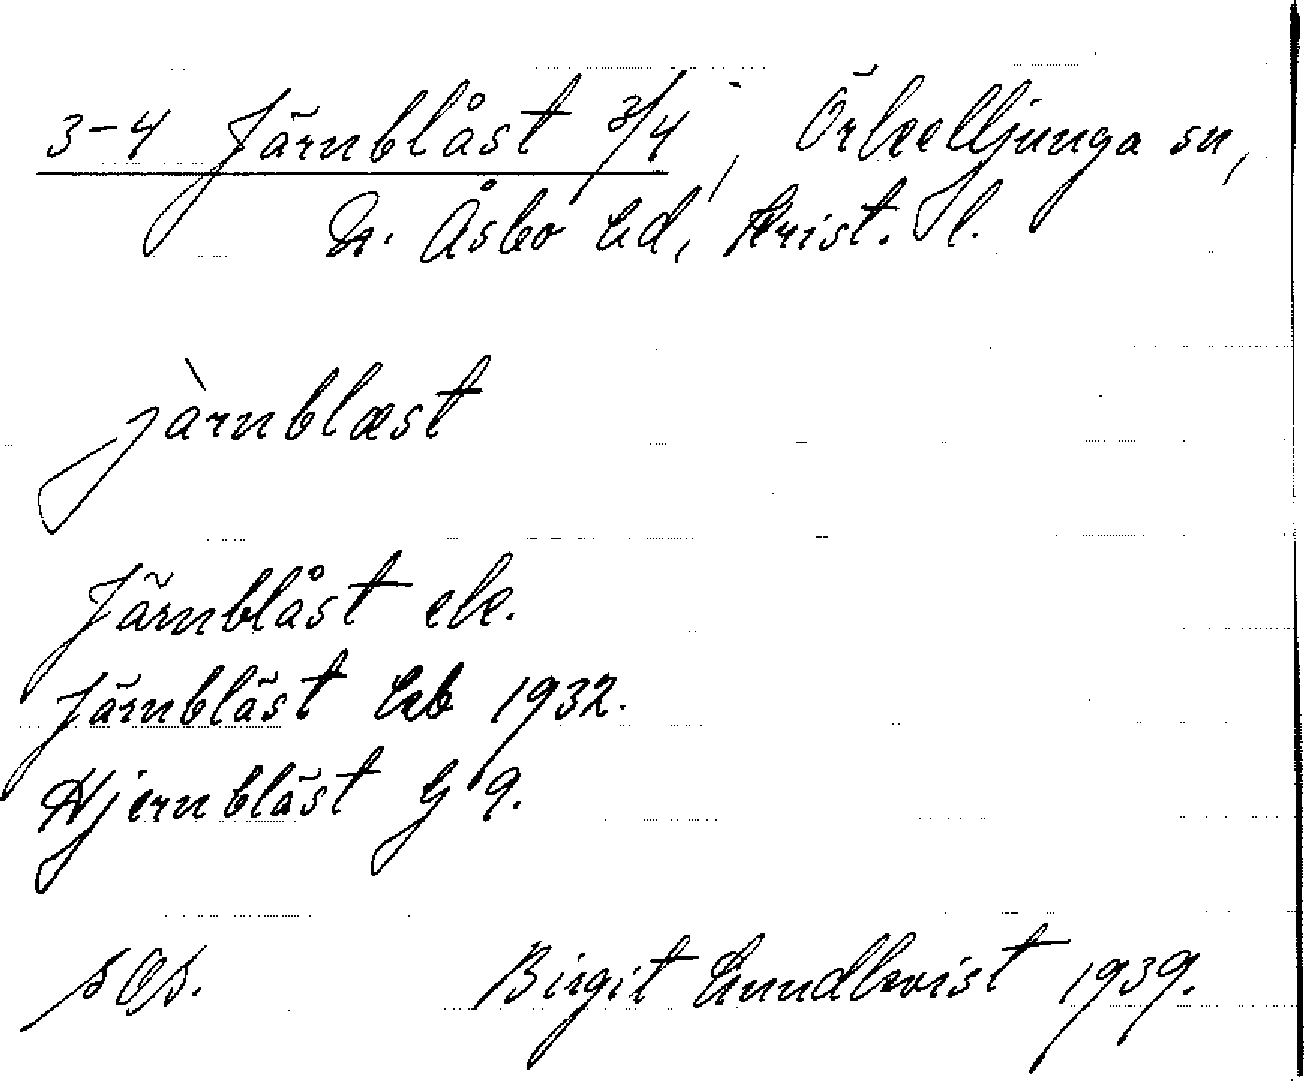 3-4 Järnblåst 3/4, Örkelljunga sn,
N. Åsbo hd, Krist. l.
jàrnblæst
Järnblåst ek.
Järnbläst 1932.
Hjernbläst G 9.
sOs. Birgit Lundkvist 1939.